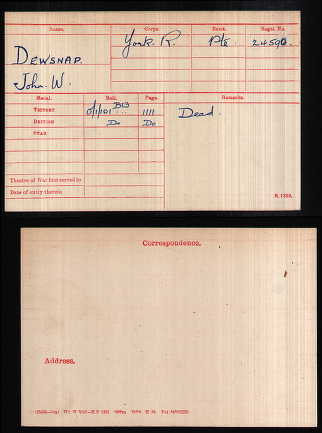 Name. Corps. Rank. Regtl. No.
DEWSNAP. York R. Pte 24590.
John. W.
Medal. Roll. Page. Remarks.
VICTORY O/1/101 B13 1111 Dead.
BRITISH Do Do
STAR
Theatre of War first served in
Date of entry therein
K. 1380.
Correspondence.
Address.